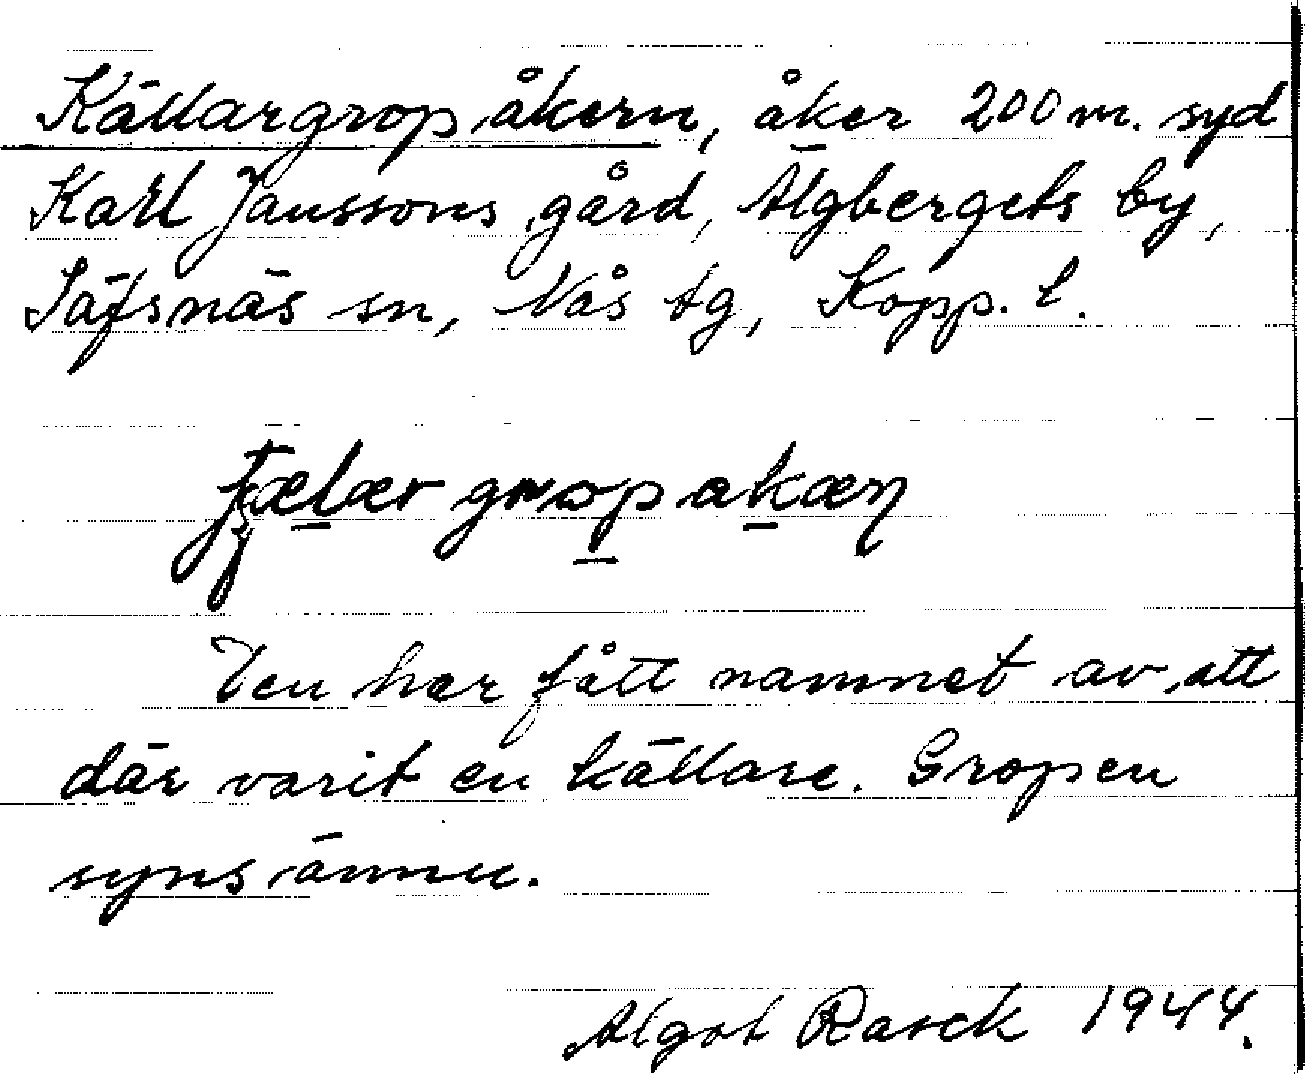 Källargropåkern, åker 200 m. syd
Karl Janssons gård, Älgbergets by,
Säfsnäs sn, Nås tg, Kopp. l.
grop
Den har fått namnet av att
där varit en källare. Gropen
syns ännu.
Algot Rasck 1944.